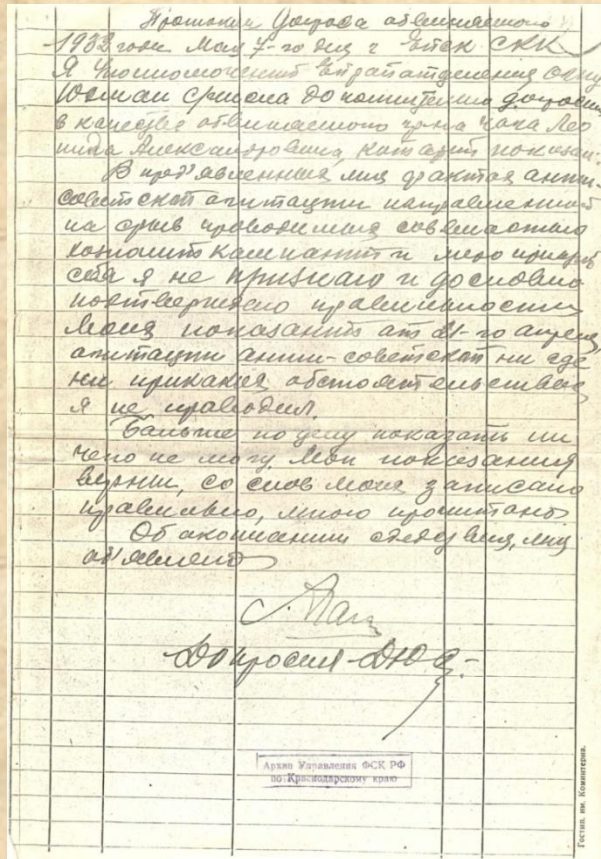 Протокол допроса обвиняемого
1932 года Мая 7-го дня г Ейск СКК
Я Уполномоченный
до
в качестве обвиняемого гр-на Лео
нида Александровича, который показал:
В пред'явленных мня фактах анти-
советской агитации направленной
на срыв проводимых
компаний и мероприятий
себя я не признаю и дословно
подтверждаю правильность
Моих показаний от 21-го апреля,
агитации анти-советской ни где
ни прикаких обстоятельствах
я не проводил.
Больше по делу показать ни
чего не могу. Мои показания
верны, со слов моих записано
правильно, мною прочитано
Об окончании следствия, мня
об'явлено
Допросил
Архив Управления ФСК РФ
по Краснодарскому краю
Гостип. им. Коминтерна.